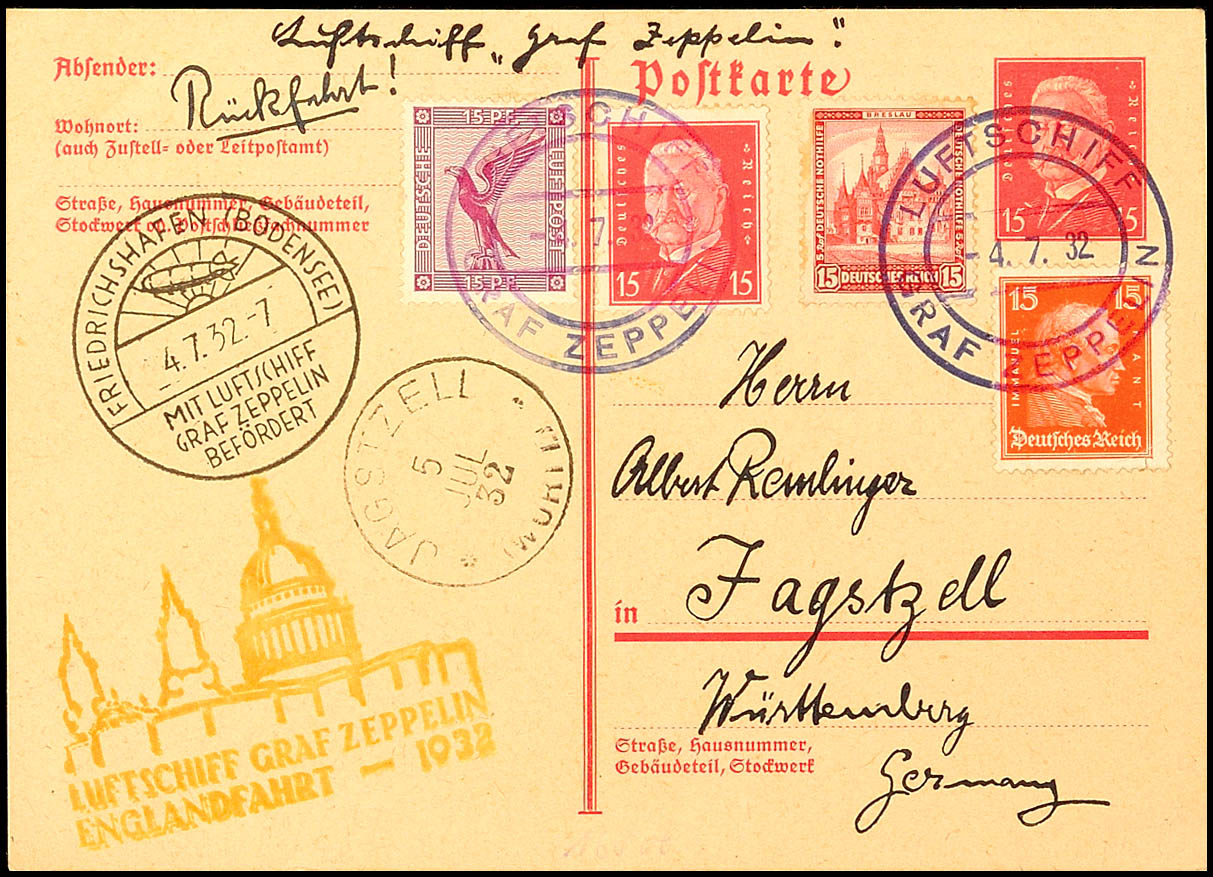 Luftschiff „Graf Zeppelin".
Rückfahrt!
Absender:
Wohnort:
(auch Zustell- oder Leitpostamt)
Straße, Hausnummer, Gebäudeteil,
Stockwerk od. Postschließfachnummer
Postkarte
15 PF.
DEUTSCHE LUFTPOST
15 PF.
Deutsches Reich
15 15
BRESLAU
5 Rpf DEUTSCHE NOTHILFE
DEUTSCHE NOTHILFE 5 Rpf
15 DEUTSCHES REICH 15
Deutsches Reich
15 15
15 15
IMMANUEL KANT
Deutsches Reich
LUFTSCHIFF
-4. 7. 32
GRAF ZEPPELIN
LUFTSCHIFF
-4. 7. 32
GRAF ZEPPELIN
FRIEDRICHSHAFEN (BODENSEE)
4.7.32.-7
MIT LUFTSCHIFF
GRAF ZEPPELIN
BEFÖRDERT
JAGSTZELL
5
JUL
32
* (WÜRTT) *
Herrn
Albert Remlinger
in Jagstzell
Württemberg
Straße, Hausnummer,
Gebäudeteil, Stockwerk
Germany
LUFTSCHIFF GRAF ZEPPELIN
ENGLANDFAHRT – 1932